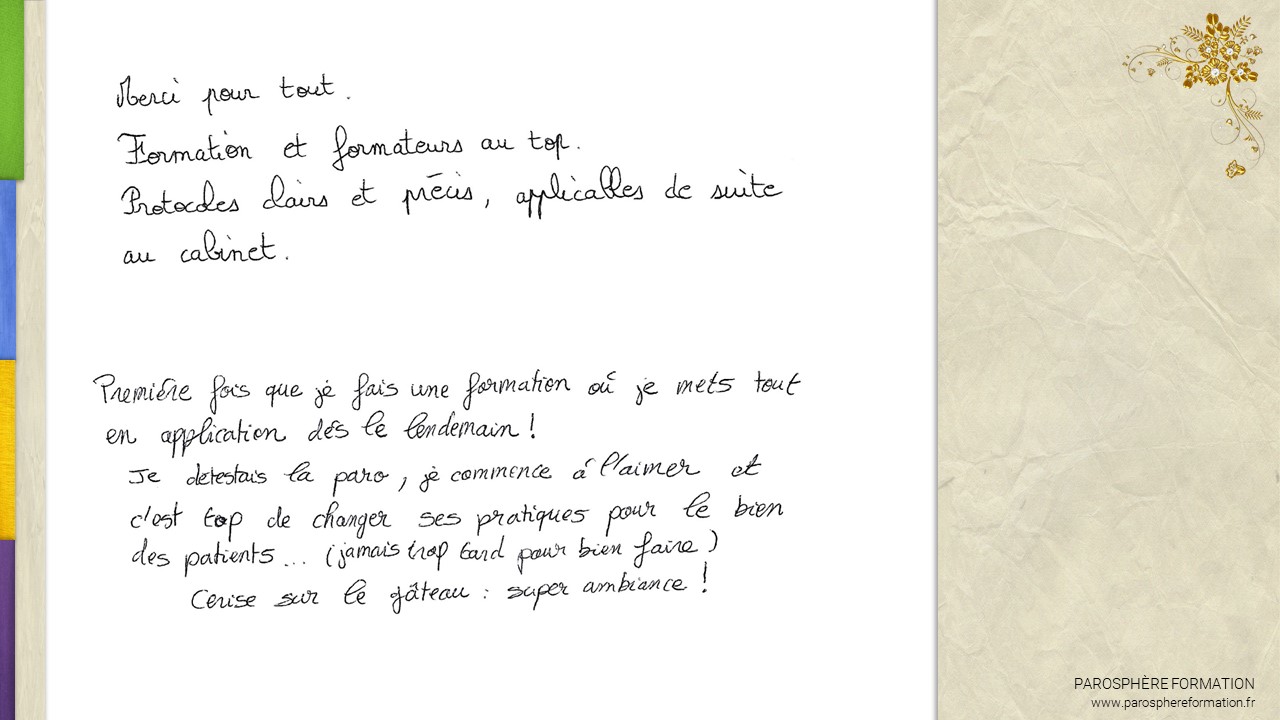 Merci pour tout.
Formation et formateurs au top.
Protocoles clairs et précis, applicables de suite
au cabinet.
Première fois que je fais une formation où je mets tout
en application dès le lendemain !
Je détestais la paro, je commence à l'aimer et
c'est top de changer ses pratiques pour le bien
des patients... (jamais trop tard pour bien faire)
Cerise sur le gâteau : super ambiance !
PAROSPHÈRE FORMATION
www.parosphereformation.fr